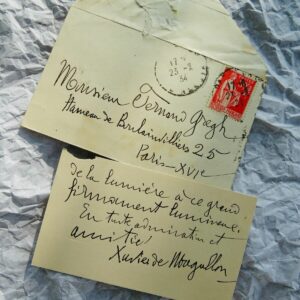 17
23-2
34
Monsieur Fernand Gregh
Hameau de Boulainvilliers 25
Paris-XVIe
de la lumière à ce grand
firmament lumineux.
En toute admiration et
amitié!
Xavier de Magallon